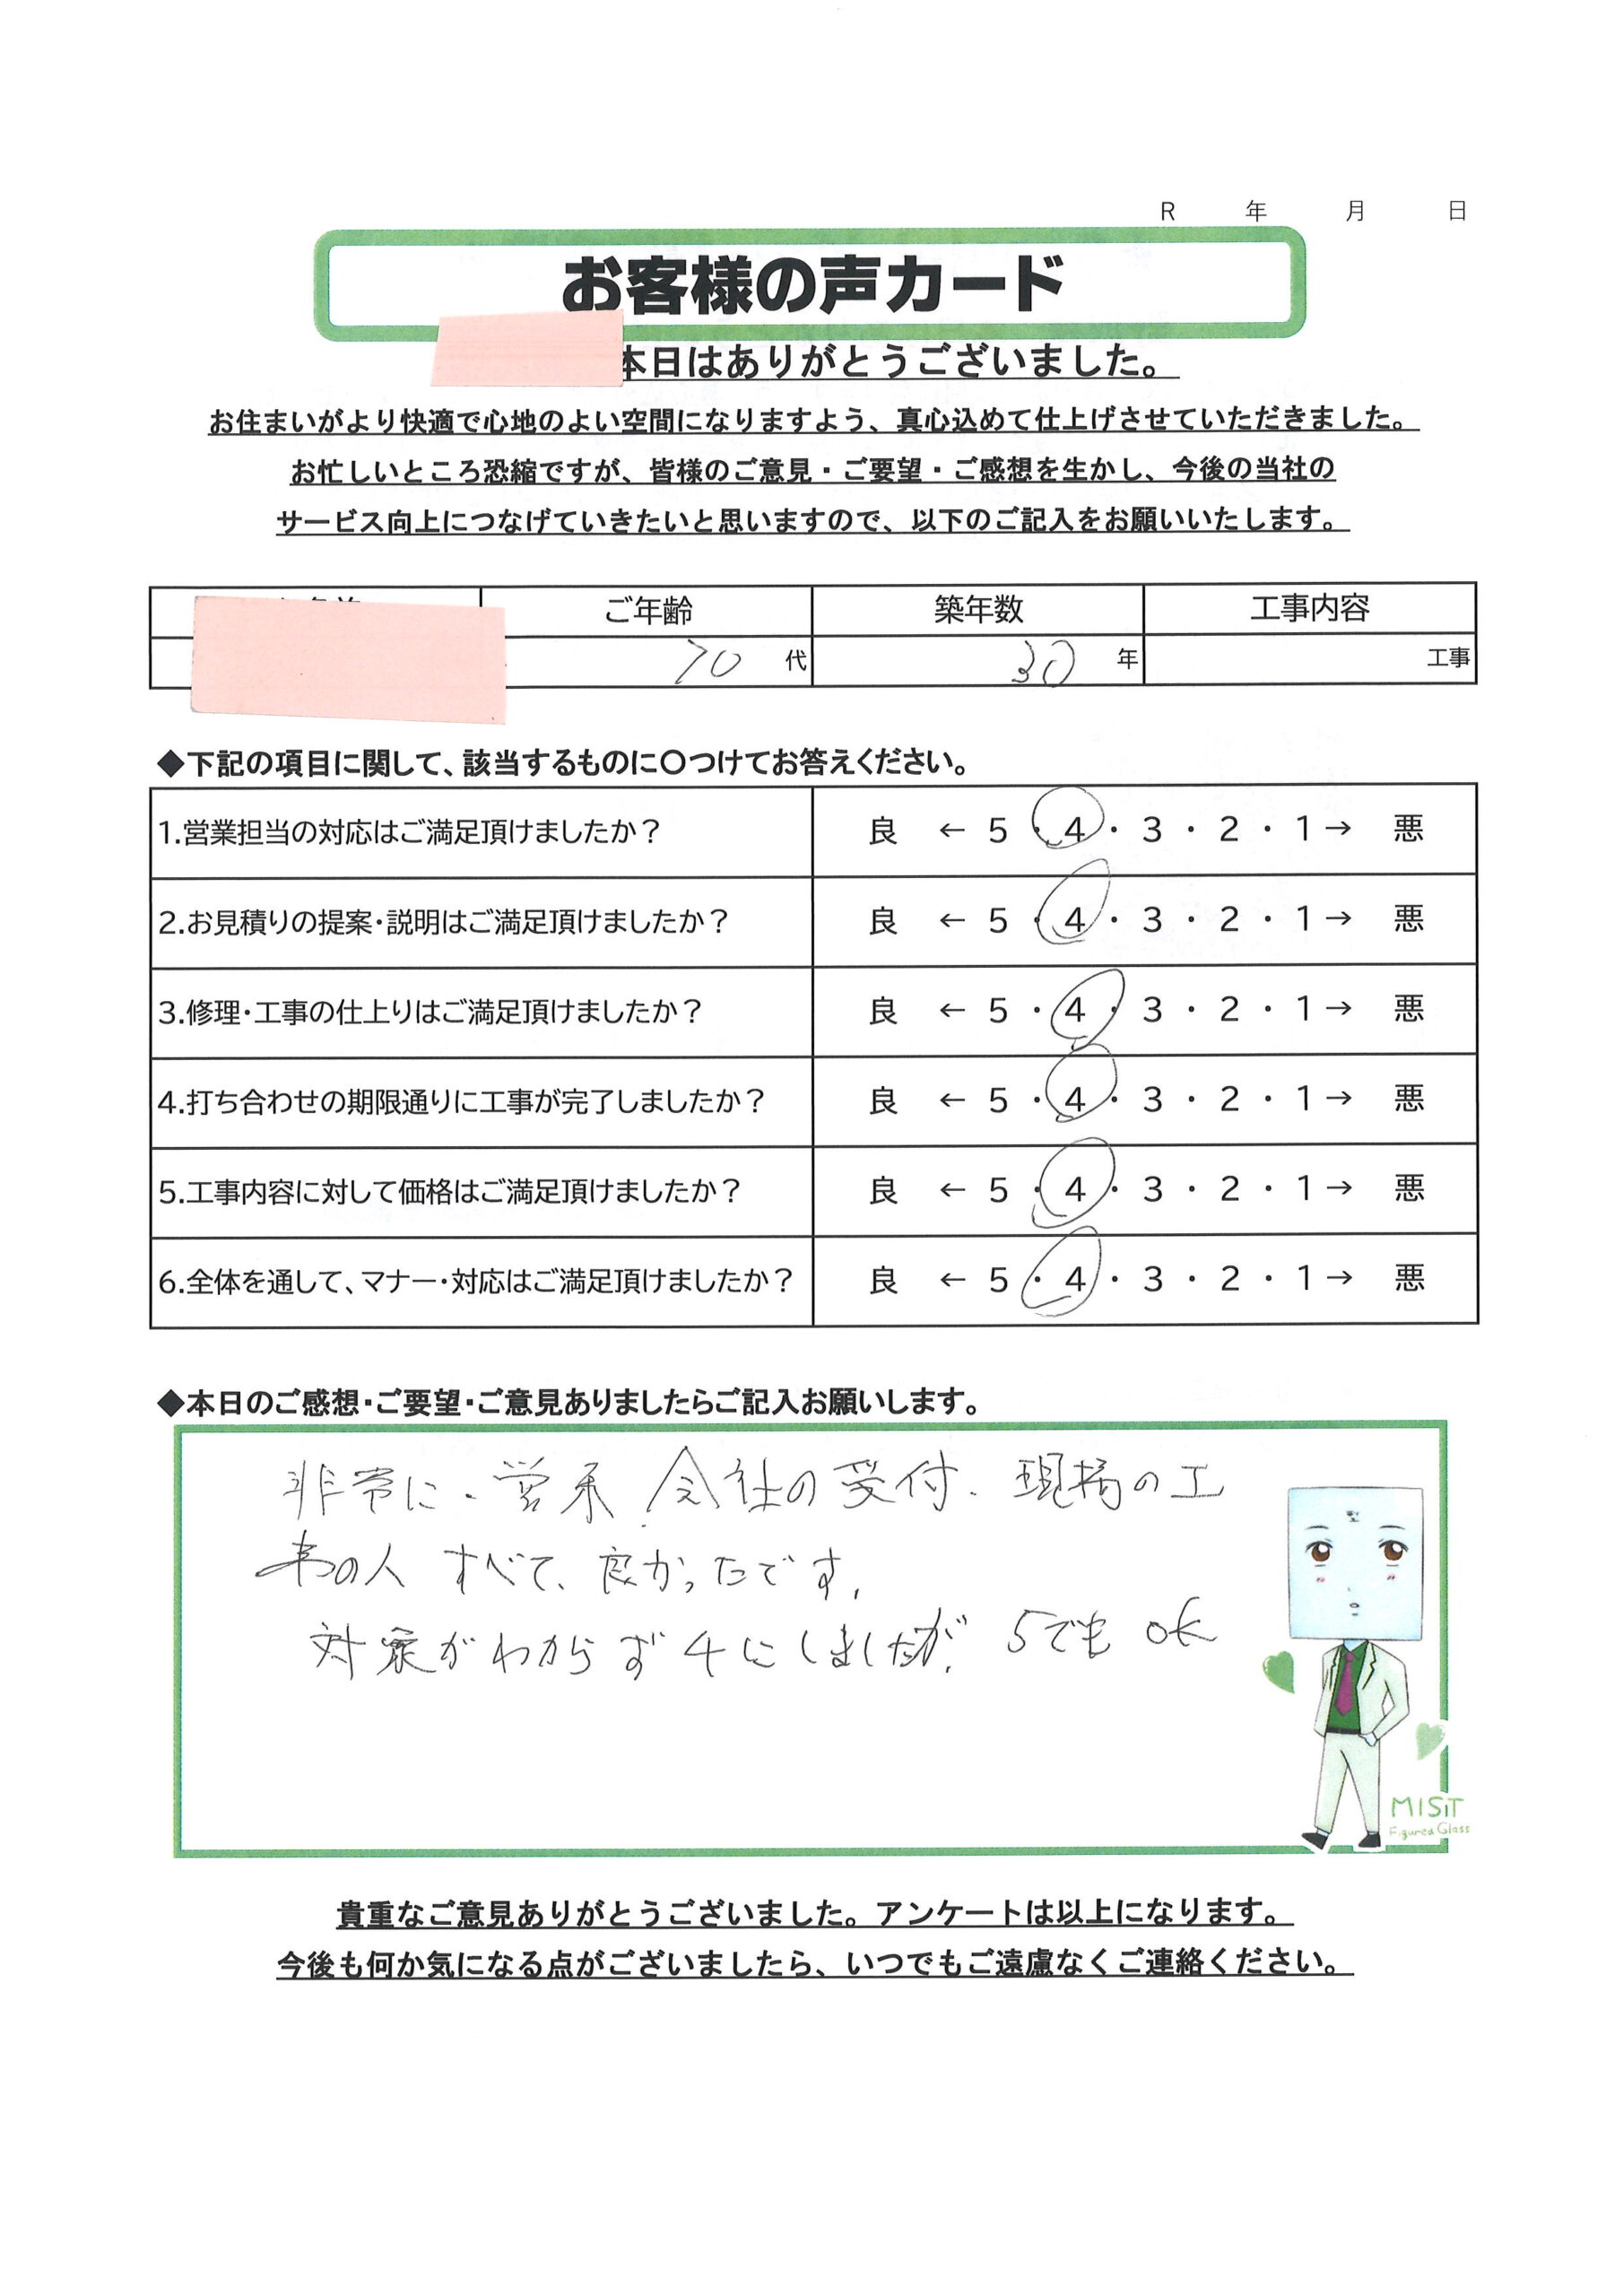 R 年 月 日
お客様の声カード
本日はありがとうございました。
お住まいがより快適で心地のよい空間になりますよう、真心込めて仕上げさせていただきました。
お忙しいところ恐縮ですが、皆様のご意見・ご要望・ご感想を生かし、今後の当社の
サービス向上につなげていきたいと思いますので、以下のご記入をお願いいたします。
ご年齢 築年数 工事内容
70 代 30 年 工事
◆下記の項目に関して、該当するものに〇つけてお答えください。
1.営業担当の対応はご満足頂けましたか? 良 ← 5 ・ 4 ・ 3 ・ 2 ・ 1 → 悪
2.お見積りの提案・説明はご満足頂けましたか? 良 ← 5 ・ 4 ・ 3 ・ 2 ・ 1 → 悪
3.修理・工事の仕上りはご満足頂けましたか? 良 ← 5 ・ 4 ・ 3 ・ 2 ・ 1 → 悪
4.打ち合わせの期限通りに工事が完了しましたか? 良 ← 5 ・ 4 ・ 3 ・ 2 ・ 1 → 悪
5.工事内容に対して価格はご満足頂けましたか? 良 ← 5 ・ 4 ・ 3 ・ 2 ・ 1 → 悪
6.全体を通して、マナー・対応はご満足頂けましたか? 良 ← 5 ・ 4 ・ 3 ・ 2 ・ 1 → 悪
◆本日のご感想・ご要望・ご意見ありましたらご記入お願いします。
非常に、営業 会社の受付、現場の工
事の人 すべて、良かったです。
対象がわからず 4にしましたが、5でも OK
MISiT
Figured Glass
貴重なご意見ありがとうございました。アンケートは以上になります。
今後も何か気になる点がございましたら、いつでもご遠慮なくご連絡ください。